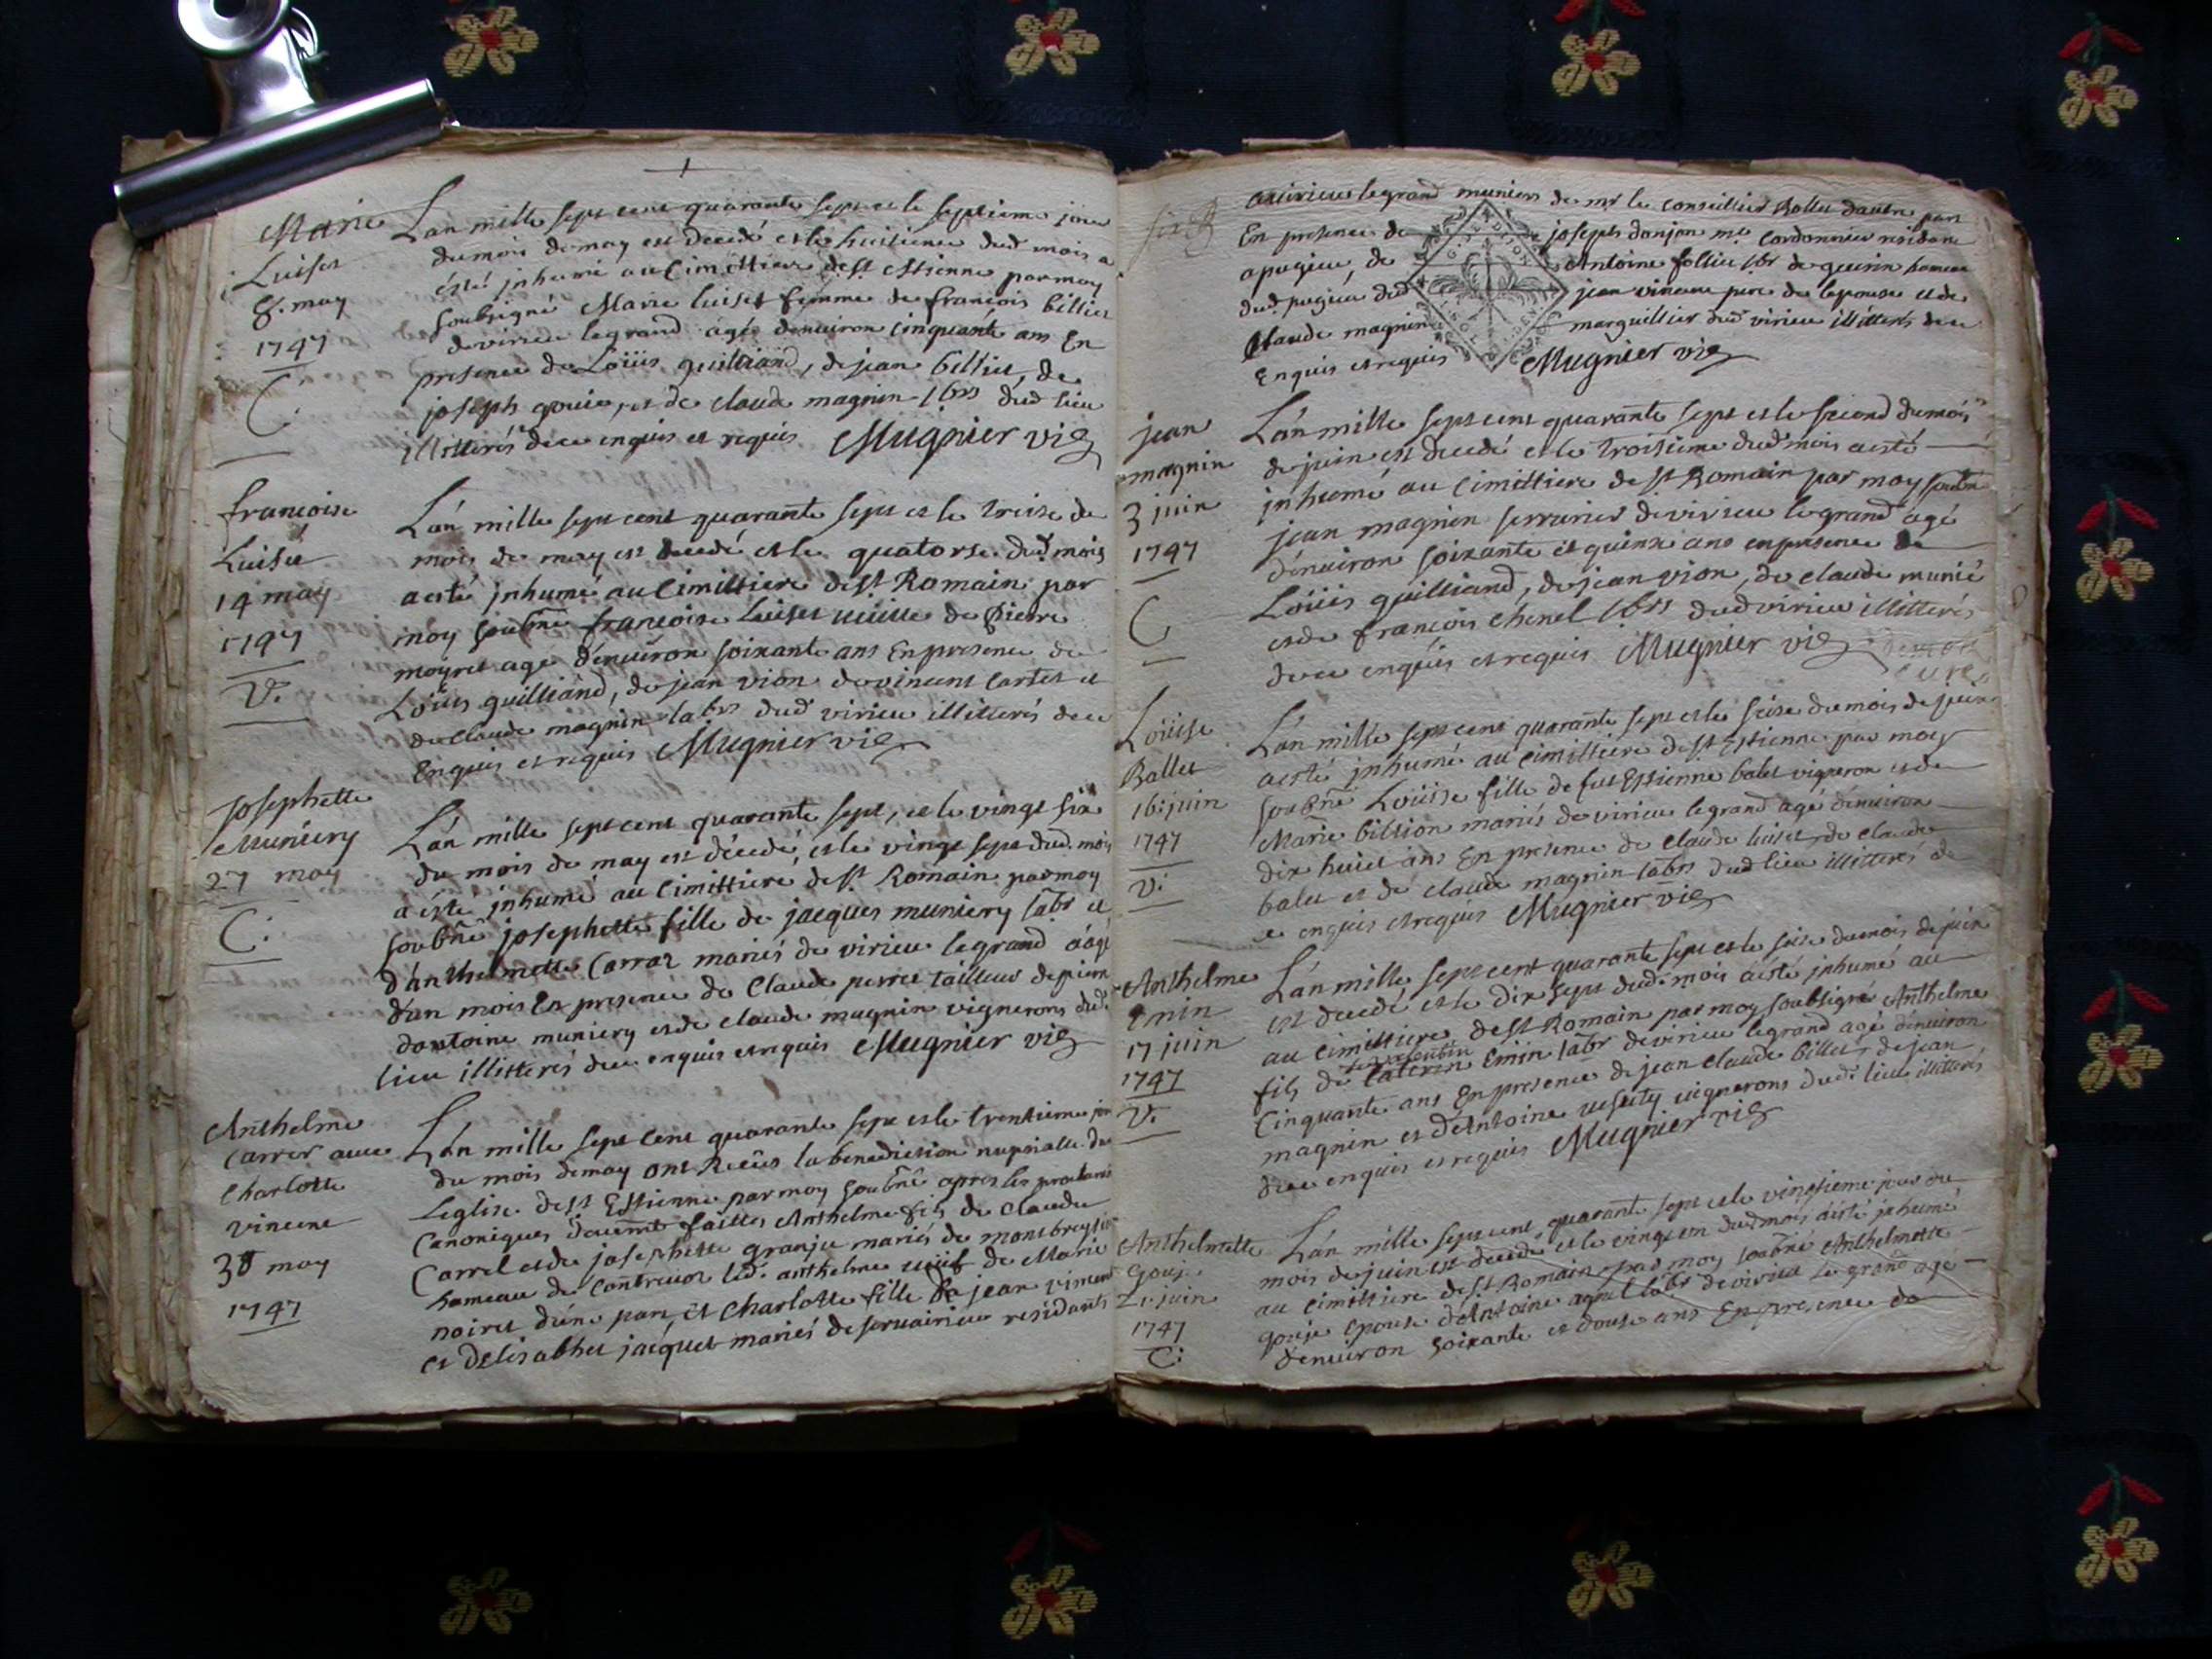 Marie
Luiset
8. may
1747
C.
L'an mille sept cent quarante sept et le septieme jour
du mois de may est decedé et le huitieme dud mois a
ésté jnhumé au Cimittiere de st Estienne par moy
soubsigné Marie luiset femme de francois billiet
de virieu legrand agé denviron cinquante ans En
presence de Loüis guilliand, de jean billiet, de
joseph goui, et de claude magnin lbrs dud lieu
illitterés dece enquis et requis Mugnier vic
francoise
Luiset
14 may
1747
V.
L'an mille sept cent quarante sept et le treize de
mois de may est decedé et le quatorse dud mois
a esté jnhumé au Cimittiere de st Romain par
moy soubné francoise Luiset veuve de Pierre
moyret agé d'enviiron soixante ans En presence de
Loüis guilliand, de jean vion de vincent Cartet et
de claude magnin labrs dud virieu illiterés dece
Enquis et requis Mugnier vic
Josephette
Muniery
27 may
C.
L'an mille sept cent quarante sept, et le vingt six
du mois de may est décedé, et le vingt sept dud. mois
a ésté jnhumé au Cimittiere de st Romain par moy
soubné josephette fille de jacques muniery labr et
d'anthelmette Carraz mariés de virieu legrand áagé
d'un mois En presence de Claude perret tailleur de pierre
d'antoine muniery et de claude magnin vignerons dud.
lieu illitterés dece enquis et requis Mugnier vic
Anthelme
Carrer avec
Charlotte
vincent
30 may
1747
L'an mille sept cent quarante sept et le trentieme jour
du mois de may ont Recüs la benediction nuptialle de
Leglise de st Estienne par moy soubné apres les proclama
Canoniques d'uement faittes Anthelme fils de Claude
Carrel et de josephette granju mariés de montbreysieu
hameau de Contrevoz led. anthelme veuf de Marie
noiret d'une part, Et Charlotte fille de jean vincent
et d'elisabhet jacquet mariés de servairieu residants
avirieu le grand muniers de mr le conseillier Rollet d'autre part
En presence de joseph donjon me Cordonnier residant
apugieu, de Antoine follliet lbr de guerin hameau
dud pugieu dud jean vincent pere de lepouse et de
Claude magnin marguillier dud virieu illitterés dece
enquis et requis Mugnier vic
jean
magnin
3 juin
1747
C
L'an mille sept cent quarante sept et le second du mois
de juin est decedé et le troisieme dud mois a esté
jnhumé au Cimittiere de st Romain par moy soubn
jean magnin serrurier de virieu legrand agé
d'enviiron soixante et quinze ans en presence de
Loüis guilliand, de jean vion, de claude munié
et de francois chenel lbrs dud virieu illitterés
dece enquis et requis Mugnier vic
Loüise
Ballet
16: juin
1747
V.
L'an mille sept cent quarante sept et le seize du mois de juin
a esté jnhumé au Cimittiere de st Estienne par moy
soubné Loüise fille de fut Estienne balet vigneron et de
Marie billion mariés de virieu legrand agé d'enviiron
dix huict ans En presence de Claude luiset, de Claude
balet et de claude magnin labrs dud lieu illitterés de
ce enquis et requis Mugnier vic
Anthelme
Emin
17 juin
1747
V.
L'an mille sept cent quarante sept et le seize du mois de juin
est decedé et le dix sept dud. mois a ésté jnhumé au
au Cimittiere de st Romain par moy soubsigné Anthelme
fils de Emin labr de virieu legrand agé d'enviiron
Cinquante ans En presence de jean claude billet, de jean
magnin et d'Antoine vignerons dud. lieu illitterés
dece enquis et requis Mugnier vic
Anthelmette
Gouje
21. juin
1747
C:
L'an mille sept cent quarante sept et le vingtieme jour du
mois de juin est decedé et le vingt un dud mois a esté jnhumé
au Cimittiere de st Romain par moy soubné Anthelmette
gouje épouse d'Antoine labr de virieu le grand agé
d'enviiron soixante et douse ans En presence de